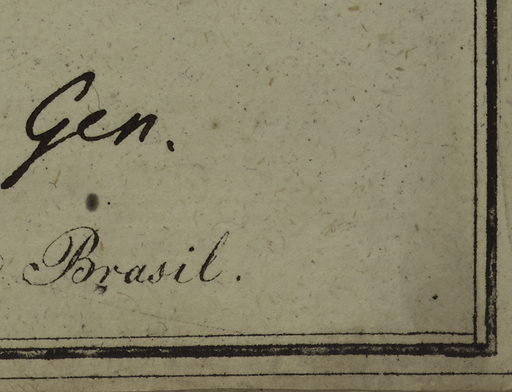 Gen.
Brasil.